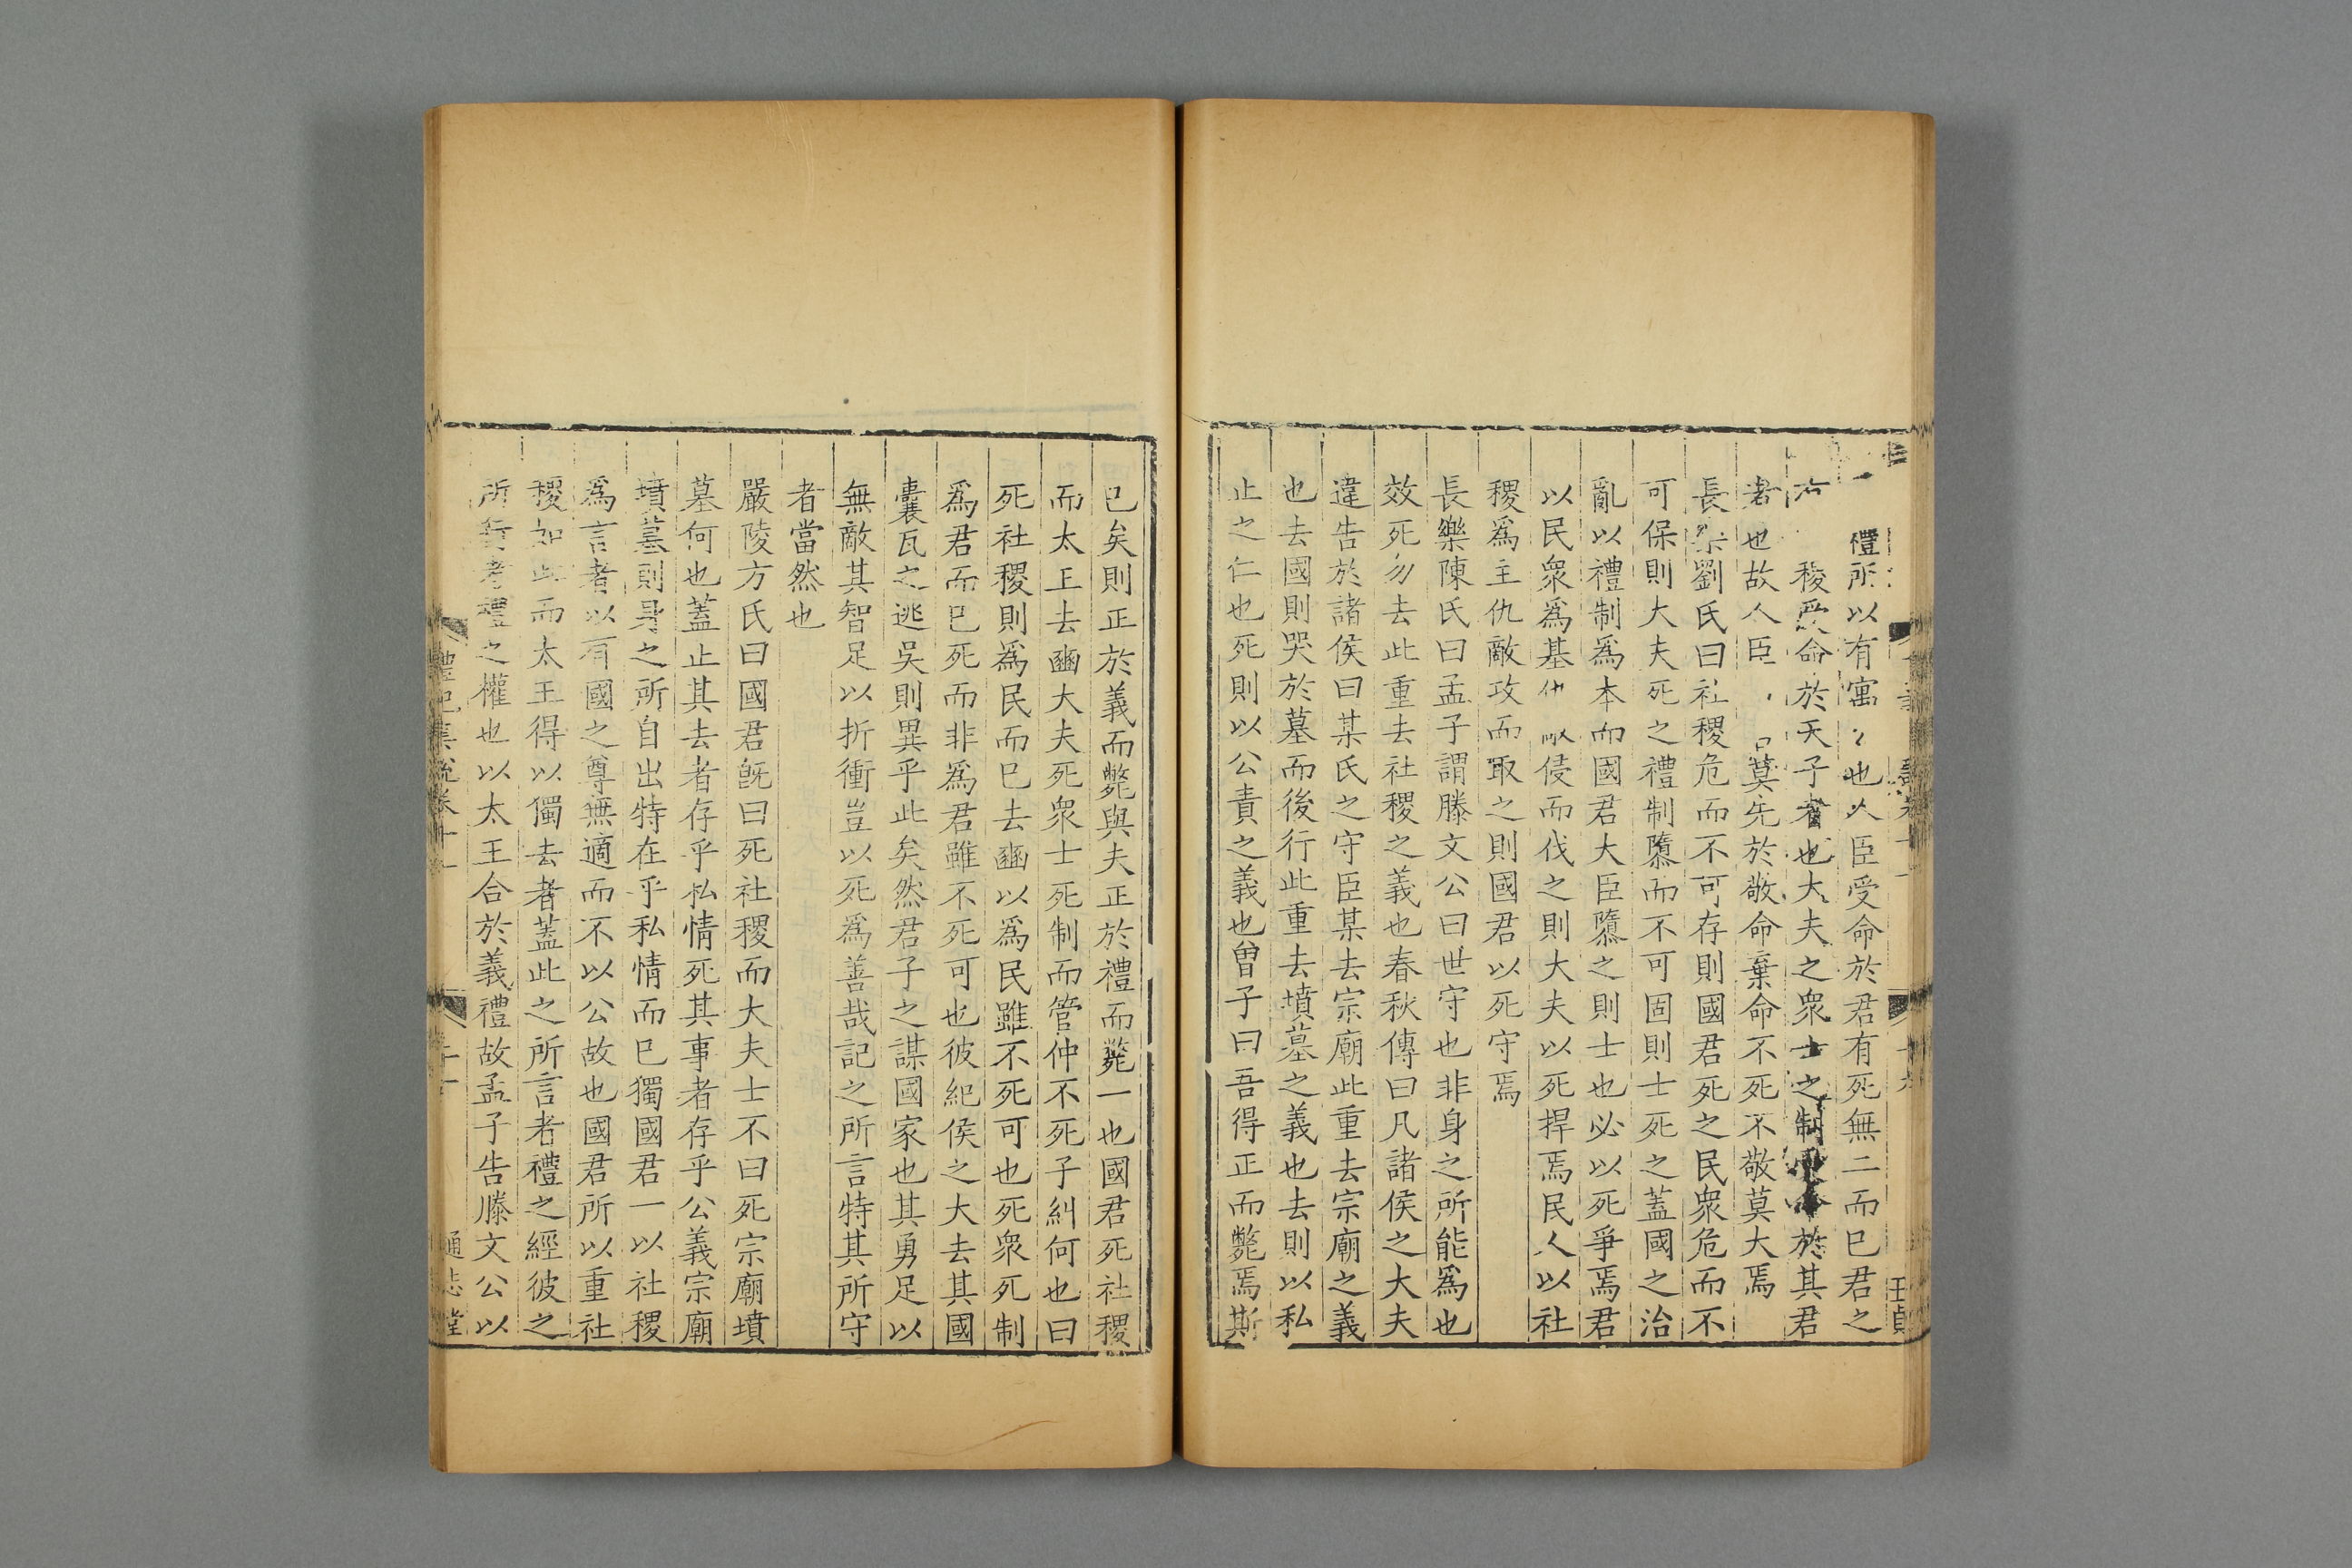 禮所以有寓也人臣受命於君有死無二而已君之
稷受命於天子者也大夫之衆士之制受命於其君
者也故人臣莫先於敬命棄命不死不敬莫大焉
長樂劉氏曰社稷危而不可存則國君死之民衆危而不
可保則大夫死之禮制隳而不可固則士死之蓋國之治
亂以禮制爲本而國君大臣隳之則士也必以死爭焉君
以民衆爲基侵而伐之則大夫以死捍焉民人以社
稷爲主仇敵攻而取之則國君以死守焉
長樂陳氏曰孟子謂滕文公曰世守也非身之所能爲也
效死勿去此重去社稷之義也春秋傳曰凡諸侯之大夫
違告於諸侯曰某氏之守臣某去宗廟此重去宗廟之義
也去國則哭於墓而後行此重去墳墓之義也去則以私
止之仁也死則以公責之義也曾子曰吾得正而斃焉斯
已矣則正於義而斃與夫正於禮而薨一也國君死社稷
而太王去豳大夫死衆士死制而管仲不死子糾何也曰
死社稷則爲民而已去豳以爲民雖不死可也死衆死制
爲君而已死而非爲君雖不死可也彼紀侯之大去其國
囊瓦之逃吳則異乎此矣然君子之謀國家也其勇足以
無敵其智足以折衝豈以死爲善哉記之所言特其所守
者當然也
嚴陵方氏曰國君旣曰死社稷而大夫士不曰死宗廟墳
墓何也蓋止其去者存乎私情死其事者存乎公義宗廟
墳墓則身之所自出特在乎私情而已獨國君一以社稷
爲言者以有國之尊無適而不以公故也國君所以重社
稷如此而太王得以獨去者蓋此之所言者禮之經彼之
所行者禮之權也以太王合於義禮故孟子告滕文公以
禮記集說卷十一
通志堂